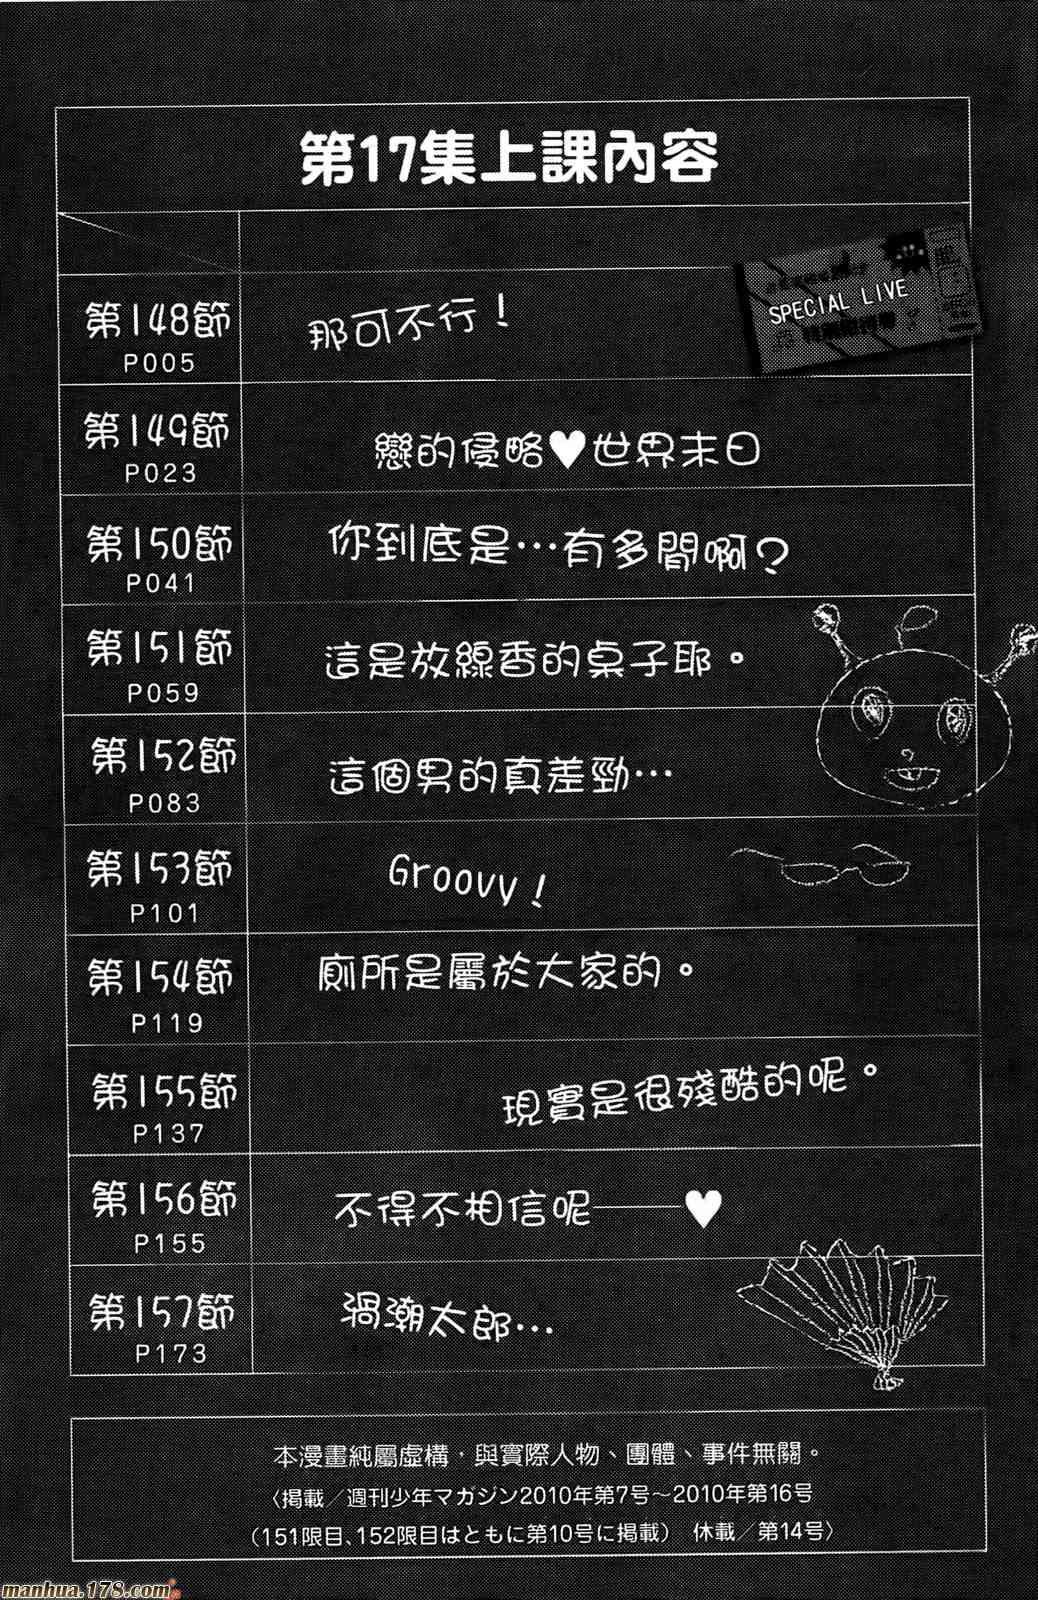 第17集上課內容
SPECIAL LIVE
第148節
P005
那可不行！
第149節
P023
戀的侵略♥世界末日
第150節
P041
你到底是…有多閒啊？
第151節
P059
這是放線香的桌子耶。
第152節
P083
這個男的真差勁…
第153節
P101
Groovy！
第154節
P119
廁所是屬於大家的。
第155節
P137
現實是很殘酷的呢。
第156節
P155
不得不相信呢——♥
第157節
P173
渦潮太郎…
本漫畫純屬虛構，與實際人物、團體、事件無關。
〈掲載／週刊少年マガジン2010年第7号～2010年第16号
（151限目、152限目はともに第10号に掲載） 休載／第14号〉
manhua.178.com